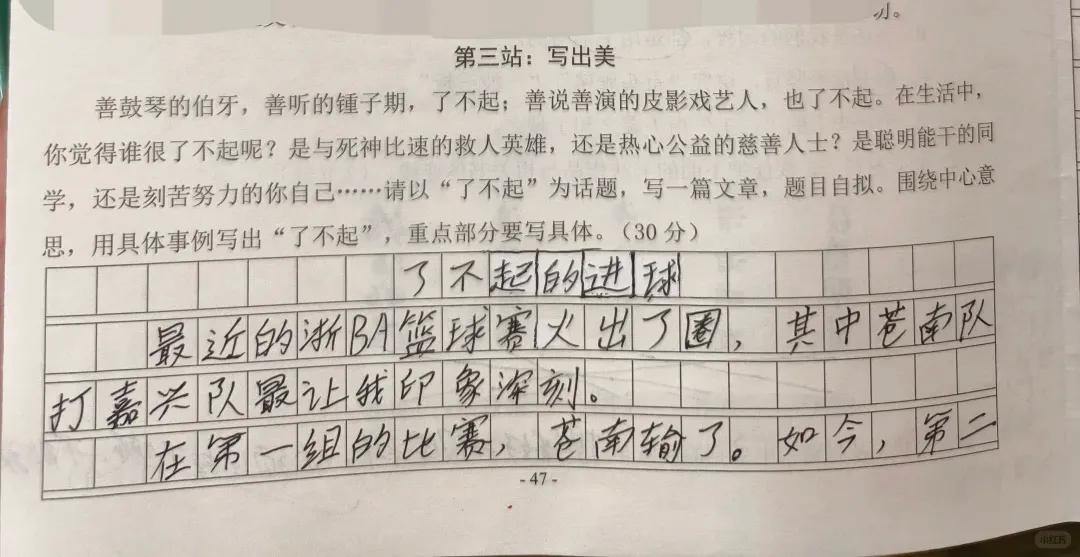 第三站：写出美
善鼓琴的伯牙，善听的锺子期，了不起；善说善演的皮影戏艺人，也了不起。在生活中，
你觉得谁很了不起呢？是与死神比速的救人英雄，还是热心公益的慈善人士？是聪明能干的同
学，还是刻苦努力的你自己……请以“了不起”为话题，写一篇文章，题目自拟。围绕中心意
思，用具体事例写出“了不起”，重点部分要写具体。（30 分）
了不起的进球
最近的浙BA篮球赛火出了圈，其中苍南队
打嘉兴队最让我印象深刻。
在第一组的比赛，苍南输了。如今，第二
- 47 -
小红书